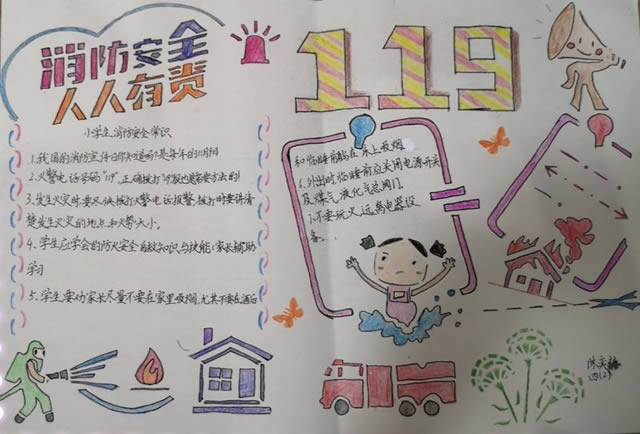 消防安全
人人有责
119
小学生消防安全常识
1.我国的消防宣传日你知道吗?是每年的11月9日
2.火警电话号码"119",正确拨打119报也要方法的!
3.发生火灾时要又快拨打火警电话报警,拨打时要讲清
楚发生火灾的地点和火势大小。
4.学生应学会的防火安全自救知识与技能(家长辅助
学习
5.学生要劝家长尽量不要在家里吸烟,尤其不要在酒后
和临睡前躺在床上吸烟
6.外出时临睡前应关闭电源开关
及煤气液化气总阀门
7.不要玩火远离电器设
备。
四(2)